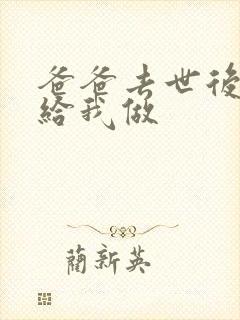 爸爸去世後
給我做
蘭新英